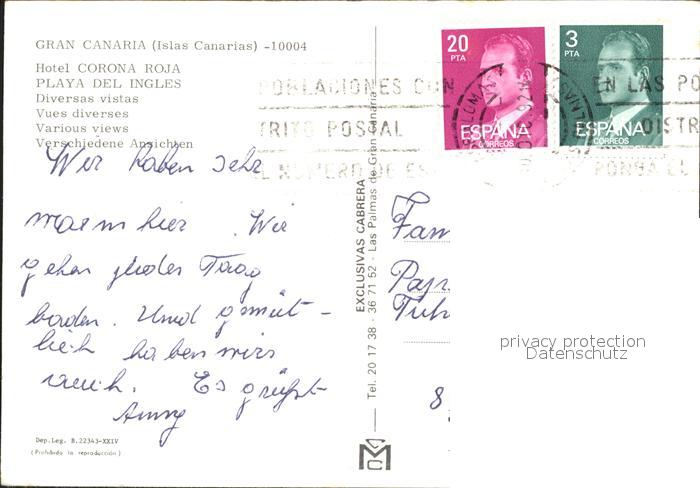 GRAN CANARIA (Islas Canarias) -10004
Hotel CORONA ROJA
PLAYA DEL INGLES
Diversas vistas
Vues diverses
Various views
Verschiedene Ansichten
Wir haben sehr
warm hier. Wir
gehen jeden Tag
baden. Und gemüt-
lich haben wirs
auch. Es grüßt
Anny
Dep.Leg. B.22343-XXIV
(Prohibida la reproducción)
EXCLUSIVAS CABRERA
Tel. 20 17 38 - 36 71 52 - Las Palmas de Gran Canaria
20
PTA
ESPAÑA
CORREOS
3
PTA
ESPAÑA
CORREOS
POBLACIONES CON
TRITO POSTAL
EL NUMERO DE ES
EN LAS PO
DISTR
PONGA EL
Fam
8
privacy protection
Datenschutz